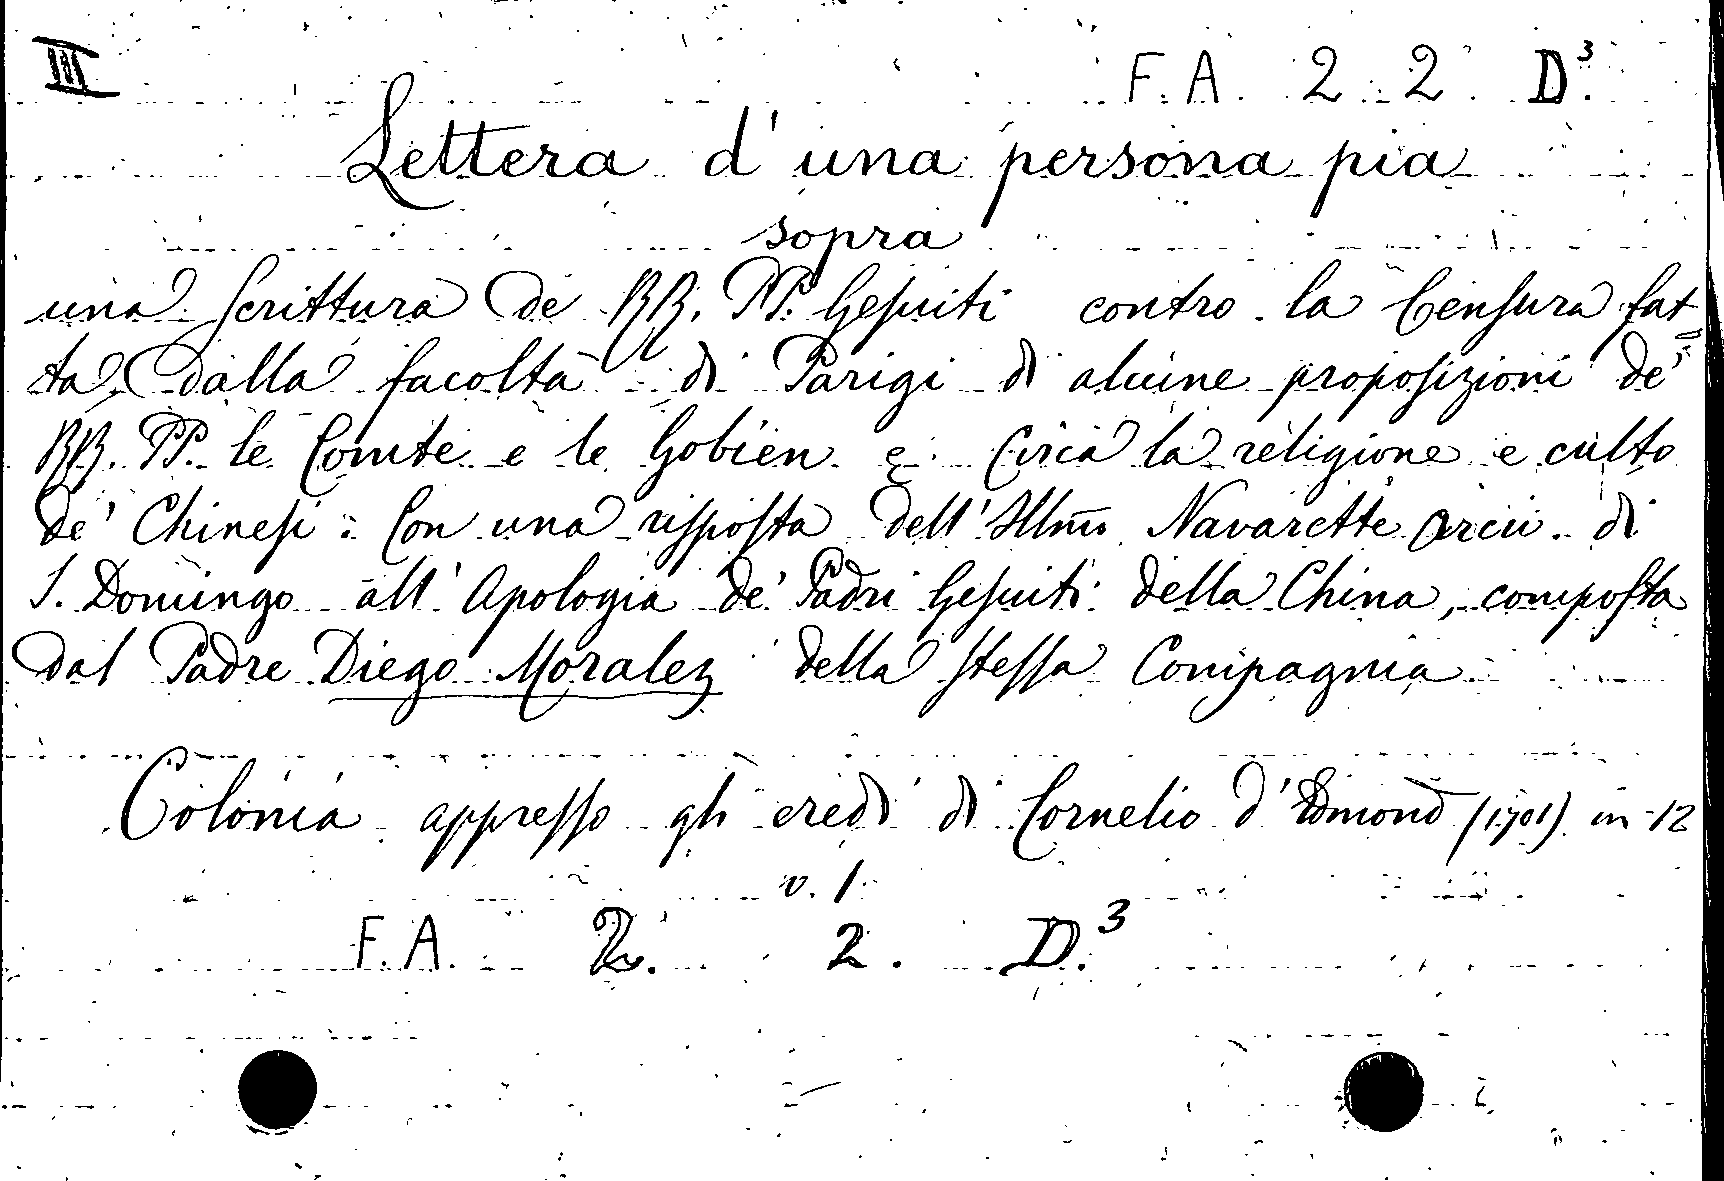 III F. A. 2 2 D.³
Lettera d'una persona pia
sopra
una Scrittura de RR. PP. Gesuiti contro la Censura fat=
ta dalla facoltà di Parigi di alcune proposizioni de'
RR. PP. le Comte e le Gobien e circa la religione e culto
de' Chinesi: Con una risposta dell'Illmo Navarette Arciv. di
S. Domingo all'Apologia de' Padri Gesuiti della China, composta
dal Padre Diego Moralez della stessa Compagnia
Colonia appresso gli eredi di Cornelio d'Edmond (1701) in-12
v. 1
F. A. 2. 2. D.³